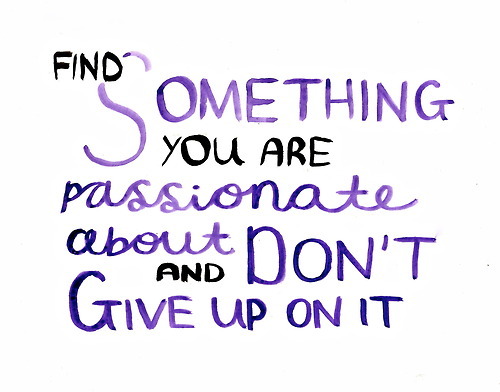 FIND SOMETHING
YOU ARE
passionate
about DON'T
AND
GIVE UP ON IT